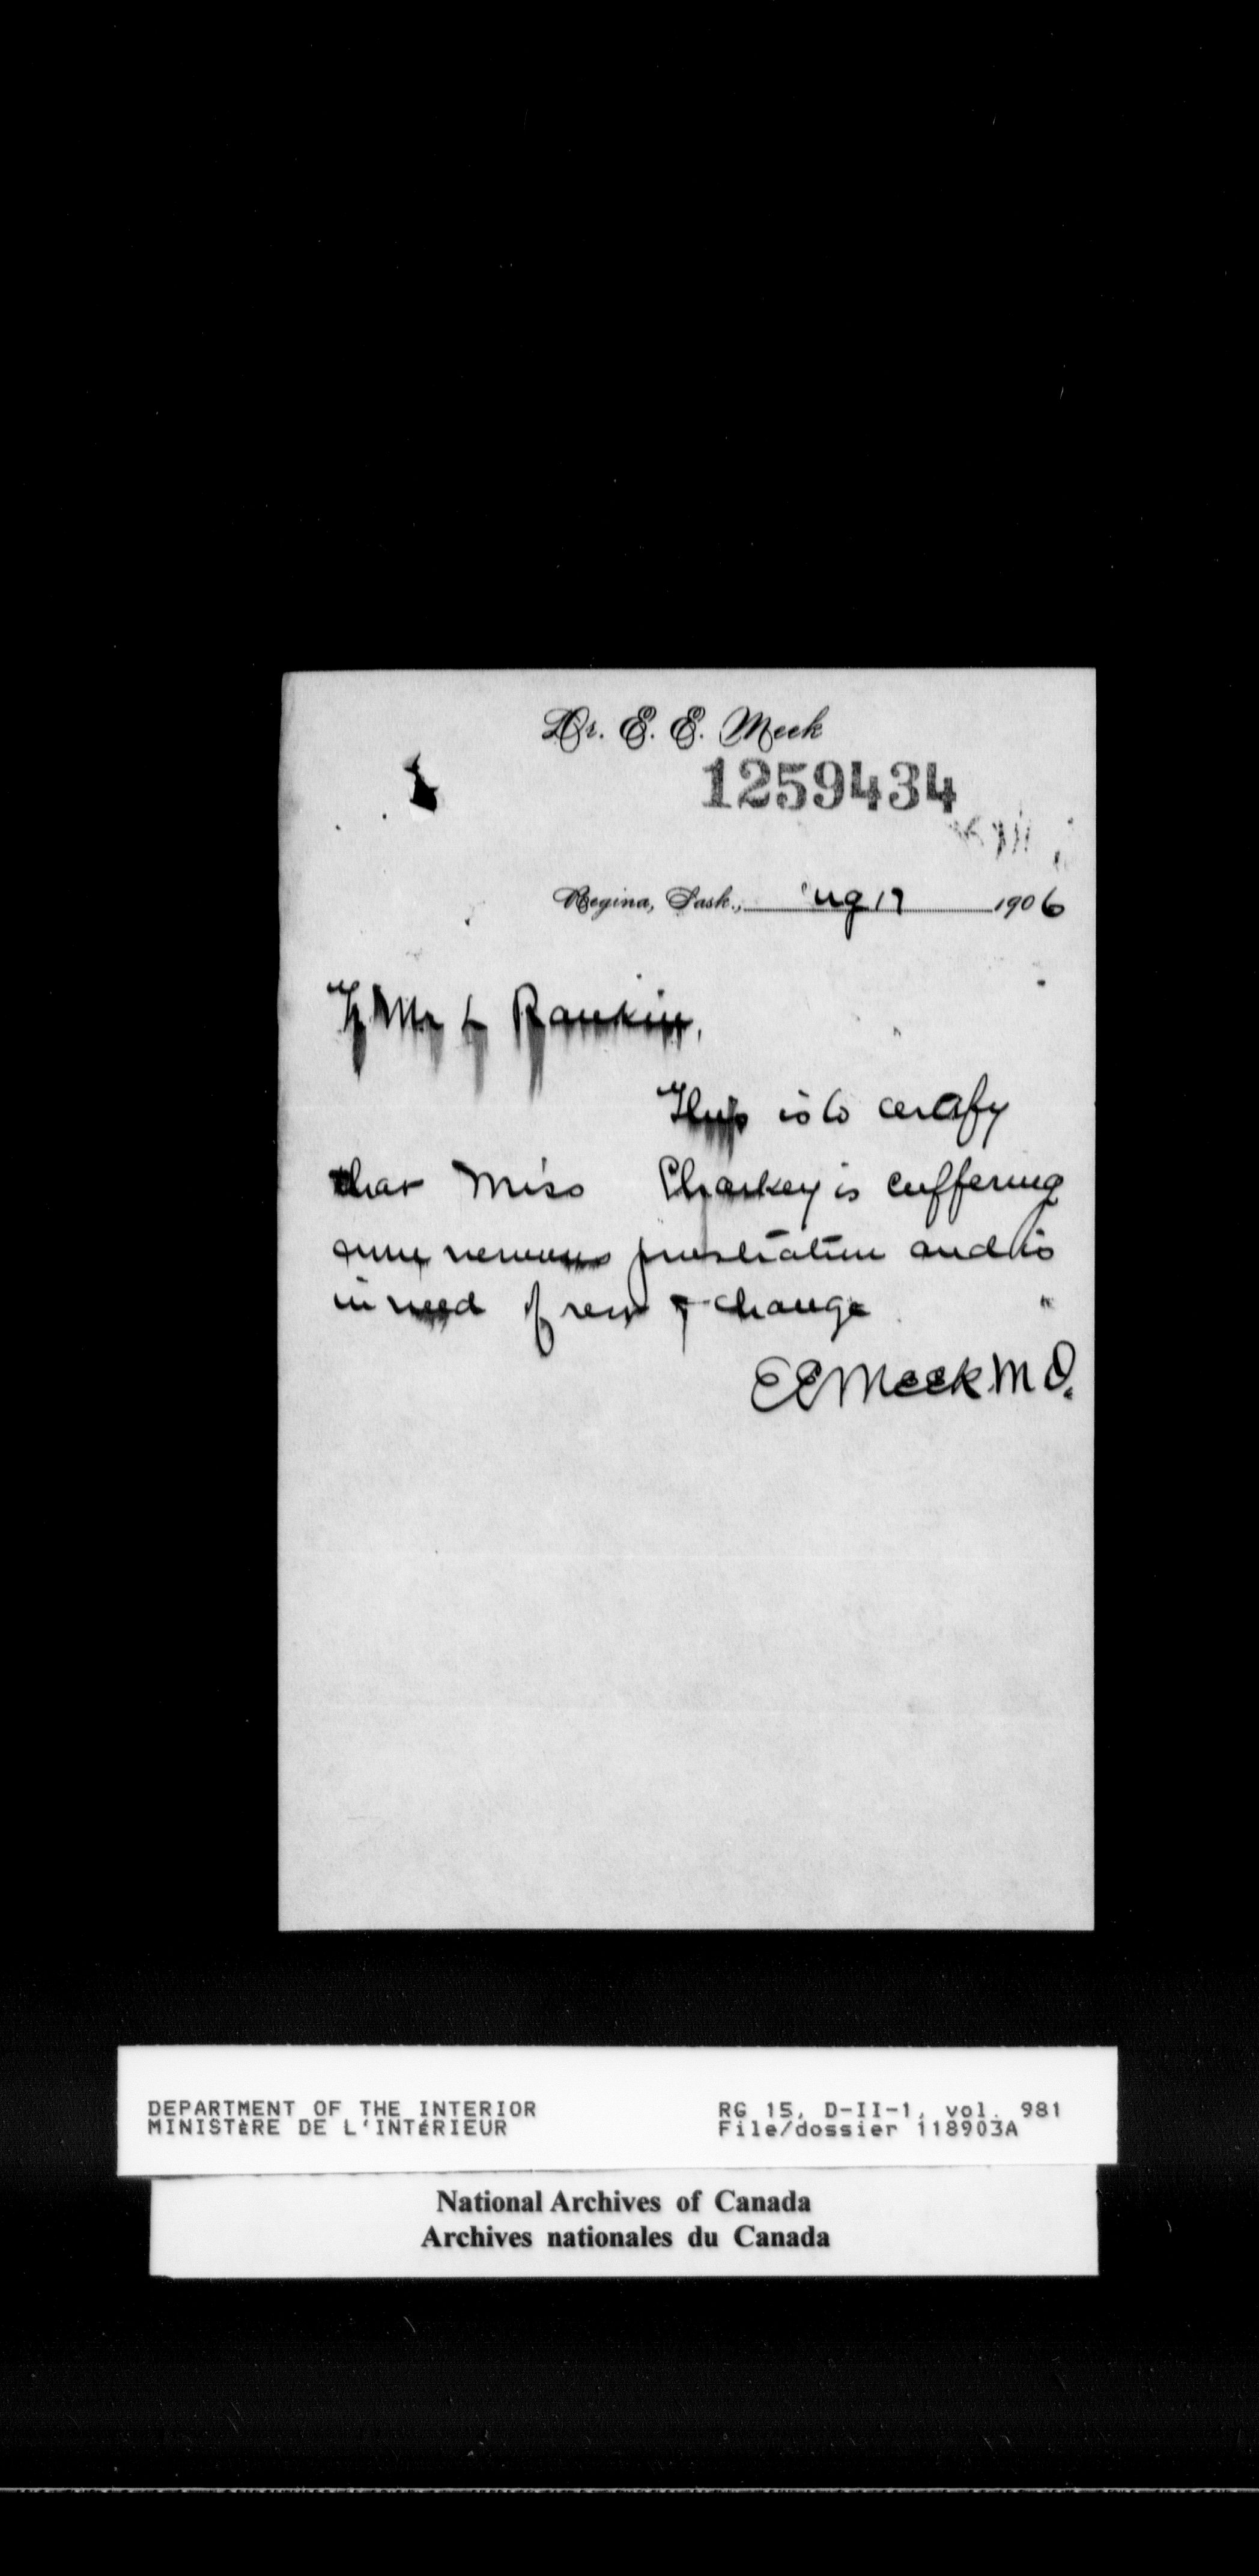 Dr. E. E. Meek
1259434
Regina, Sask., Aug 17 1906
To Mr L Rankin,
This is to certify
that Miss Sharkey is suffering
from nervous prostration and is
in need of rest & change
E E Meek M D.
DEPARTMENT OF THE INTERIOR RG 15, D-II-1, vol. 981
MINISTÈRE DE L'INTÉRIEUR File/dossier 118903A
National Archives of Canada
Archives nationales du Canada